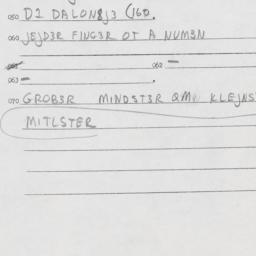 050 D1 DALON8J3 (160.
060 JEJD3R FING3R OT A NUM3N
062 —
063 — .
070 GROB3R MINDST3R QM. KLEJNS
MITLSTER